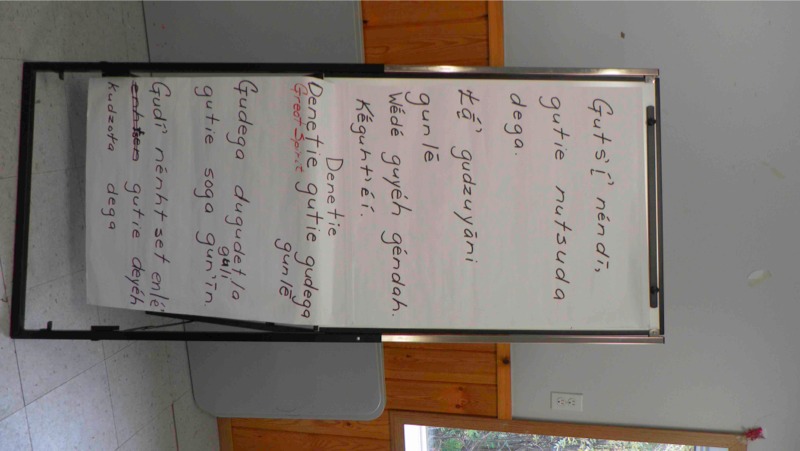 Guts'į́' néndī,
gutie nutsuda
dega.
Łḗ' gudzuyāni
gunlē
Wédé guyéh géndah.
Kéguht'éí.
Denetie
Denetie gutie gudega
Great Spirit
gunlē
Gudega dugudet,la
guli
gutie soga gun'īn
Gudī nénht set enlé
gutie deyéh
kudzota dega